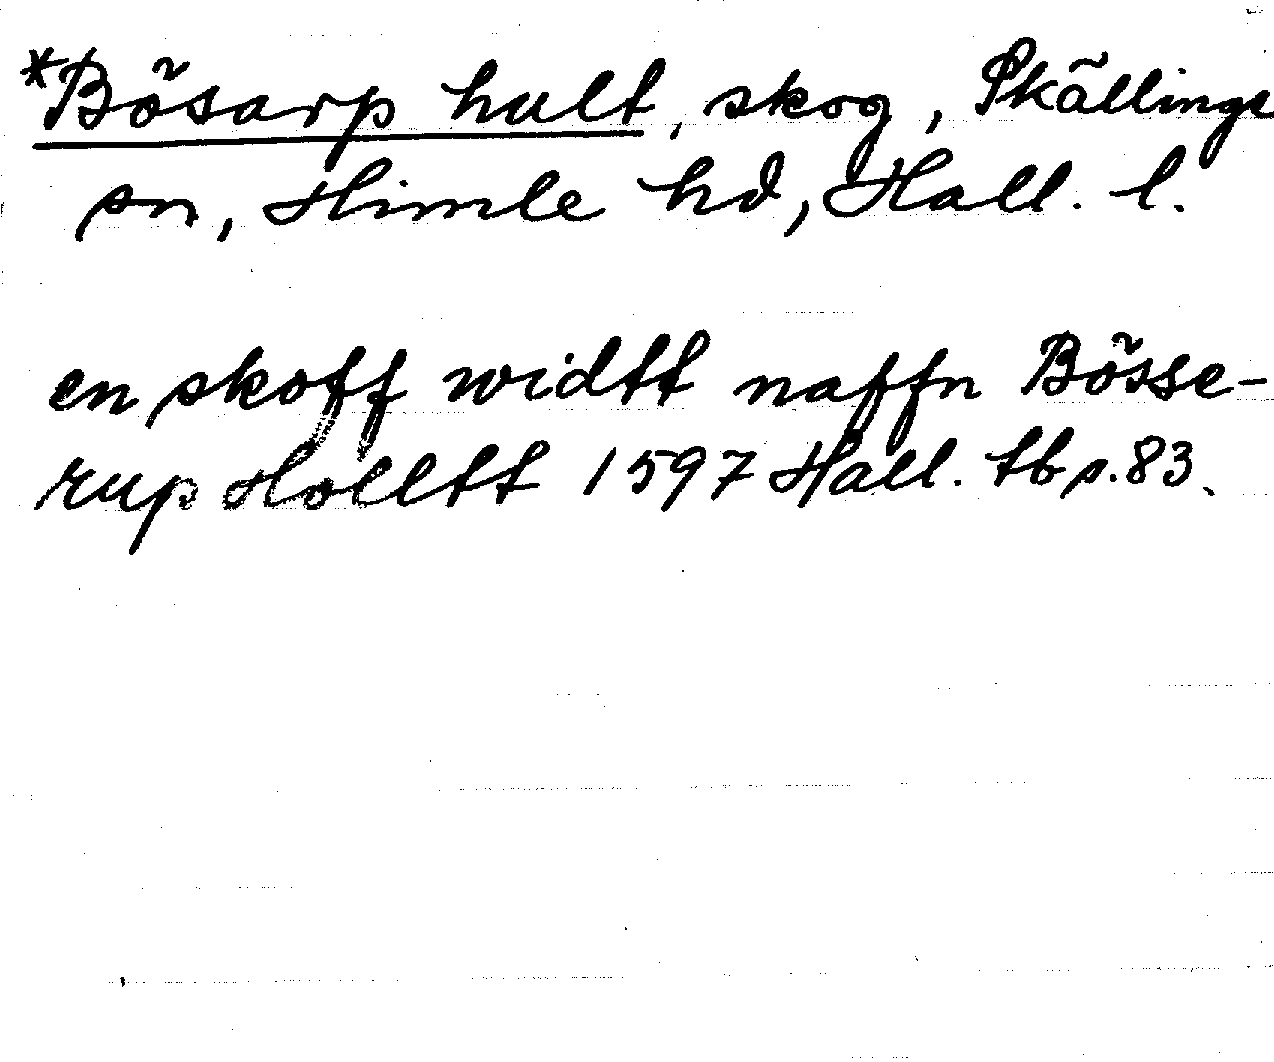 *Bösarp hult, skog, Skällinge
sn, Himle hd, Hall. l.
en skoff widtt naffn Bösse-
rupHolltt 1597 Hall. tb s. 83.